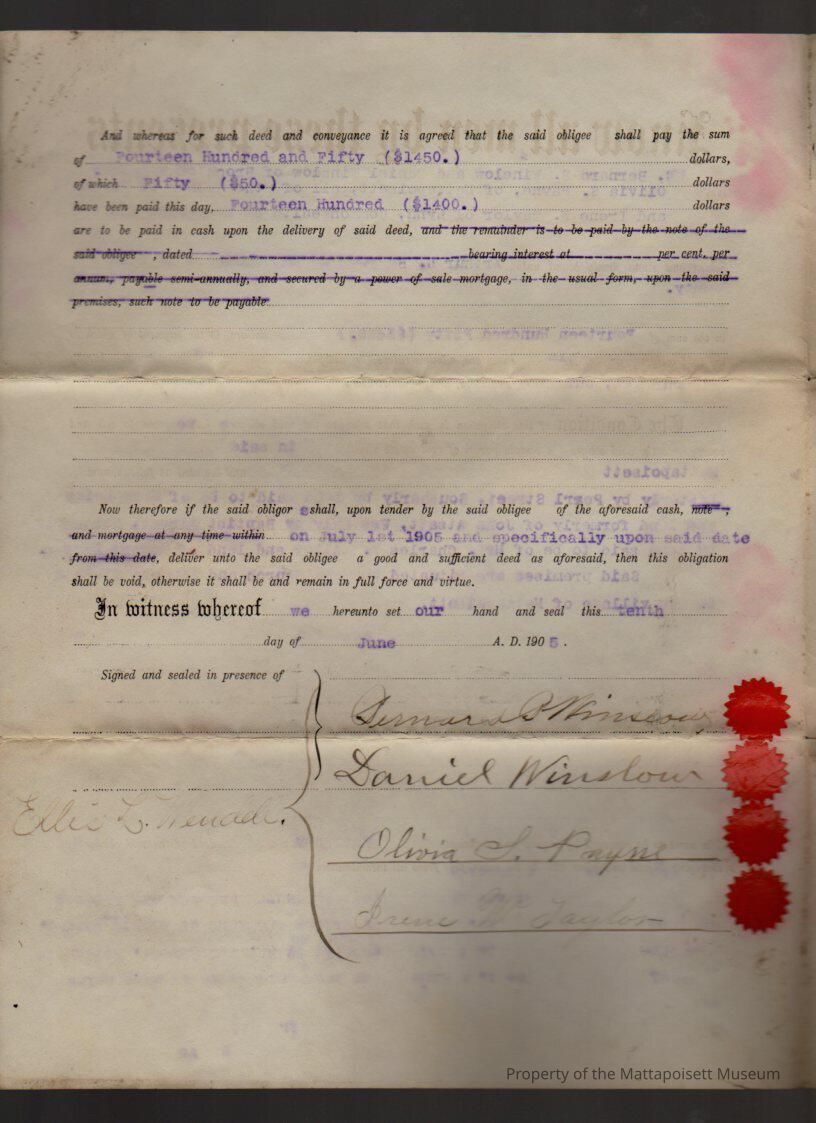 And whereas for such deed and conveyance it is agreed that the said obligee shall pay the sum
of Fourteen Hundred and Fifty ($1450.) dollars,
of which Fifty ($50.) dollars
have been paid this day, Fourteen Hundred ($1400.) dollars
are to be paid in cash upon the delivery of said deed, and the remainder is to be paid by the note of the
said obligee , dated bearing interest at per cent. per
annum, payable semi-annually, and secured by a power of sale mortgage, in the usual form, upon the said
premises, such note to be payable
Now therefore if the said obligor s shall, upon tender by the said obligee of the aforesaid cash, note ,
and mortgage at any time within on July 1st 1905 and specifically upon said date
from this date, deliver unto the said obligee a good and sufficient deed as aforesaid, then this obligation
shall be void, otherwise it shall be and remain in full force and virtue.
In witness whereof we hereunto set our hand and seal this tenth
day of June A. D. 1905.
Signed and sealed in presence of
Bernard P Winslow
Daniel Winslow
Ellis L.
Olivia S. Payne
Irene W Taylor
Property of the Mattapoisett Museum